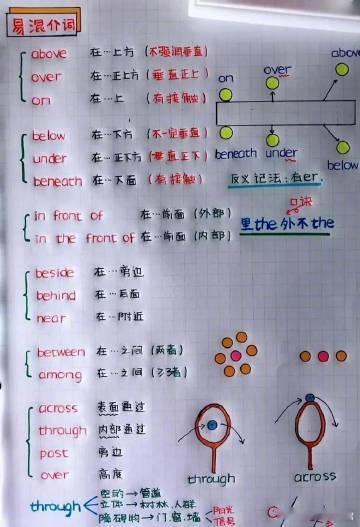 易混介词
above 在…上方 (不强调垂直)
over 在…正上方 (垂直正上)
on 在…上 (有接触)
on over above
below 在…下方 (不一定垂直)
under 在…正下方 (垂直正下)
beneath 在…下面 (有接触)
beneath under below
反义记法:有er.
in front of 在…前面 (外部)
in the front of 在…前面 (内部)
口诀
里the外不the
beside 在…旁边
behind 在…后面
near 在…附近
between 在…之间 (两者)
among 在…之间 (≥3者)
across 表面通过
through 内部通过
past 旁边
over 高度
through across
through
空的→管道
立体→树林,人群
障碍物→门.窗.墙
阳光
信号